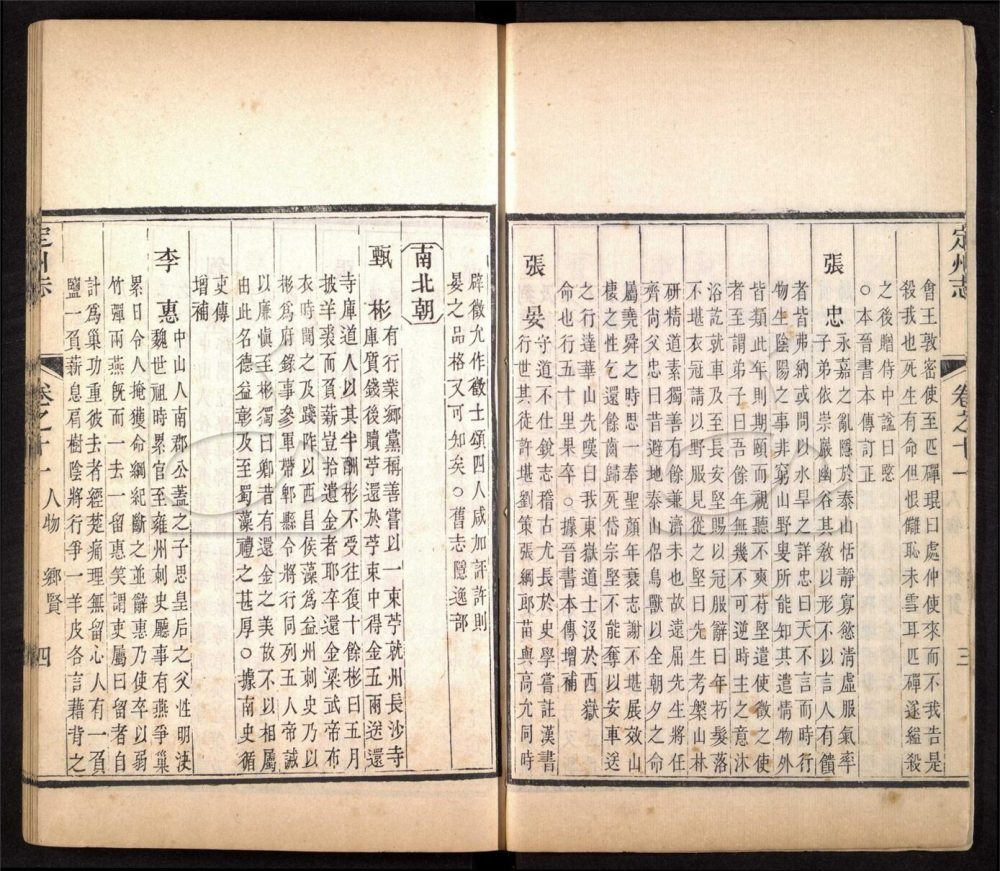 定州志 卷之十一 三
會王敦密使至匹磾琨曰處仲使來而不我告是
殺我也死生有命但恨讎恥未雪耳匹磾遂縊殺
之後贈侍中諡曰愍
○本晉書本傳訂正
張忠 永嘉之亂隱於泰山恬靜寡慾清虛服氣率
子弟依崇巖幽谷其教以形不以言人有饋
者皆弗納或問以水旱之詳忠曰天不言而時行
物生陰陽之事非窮山野叟所能知其遣情物外
皆類此年則期頤而視聽不爽苻堅遣使徵之使
者至謂弟子曰吾餘年無幾不可逆時主之意沐
浴訖就車及至長安堅賜以冠服辭曰年朽髮落
不堪衣冠請以野服見從之堅曰先生考槃山林
研精道素獨善有餘兼濟未也故遠屈先生將任
齊尚父忠曰昔避地泰山侶鳥獸以全朝夕之命
屬堯舜之時思一奉聖顏年衰志謝不堪展效山
棲之性乞還餘齒歸死岱宗堅不能奪以安車送
之行達華山先嘆曰我東嶽道士沒於西嶽
命也行五十里果卒○據晉書本傳增補
張晏 守道不仕銳志稽古尤長於史學嘗註漢書
行世其徒許堪劉策張綱郎苗與高允同時
辟徵允作徵士頌四人咸加評許則
晏之品格又可知矣○舊志隱逸部
南北朝
甄彬 有行業鄉黨稱善嘗以一束苧就州長沙寺
庫質錢後贖苧還於苧束中得金五兩送還
寺庫道人以其半酬彬不受往復十餘彬曰五月
披羊裘而負薪豈拾遺金者耶卒還金梁武帝布
衣時聞之及踐阼以西昌侯藻為益州刺史乃以
彬為府錄事參軍帶郫縣令將行同列五人帝誡
以廉慎至彬獨曰卿昔有還金之美故不以相屬
由此名德益彰及至蜀藻禮之甚厚○據南史循
吏傳
增補
李惠 中山人南郡公蓋之子思皇后之父性明決
魏世祖時累官至雍州刺史廳事有燕爭巢
累日令人掩獲命綱紀斷之並辭惠乃使卒以弱
竹彈兩燕既而一去一留惠笑謂吏屬曰留者自
計為巢功重彼去者經楚痛理無留心人有一負
鹽一負薪息肩樹陰將行爭一羊皮各言藉背之
定州志 卷之十一 人物 鄉賢 四